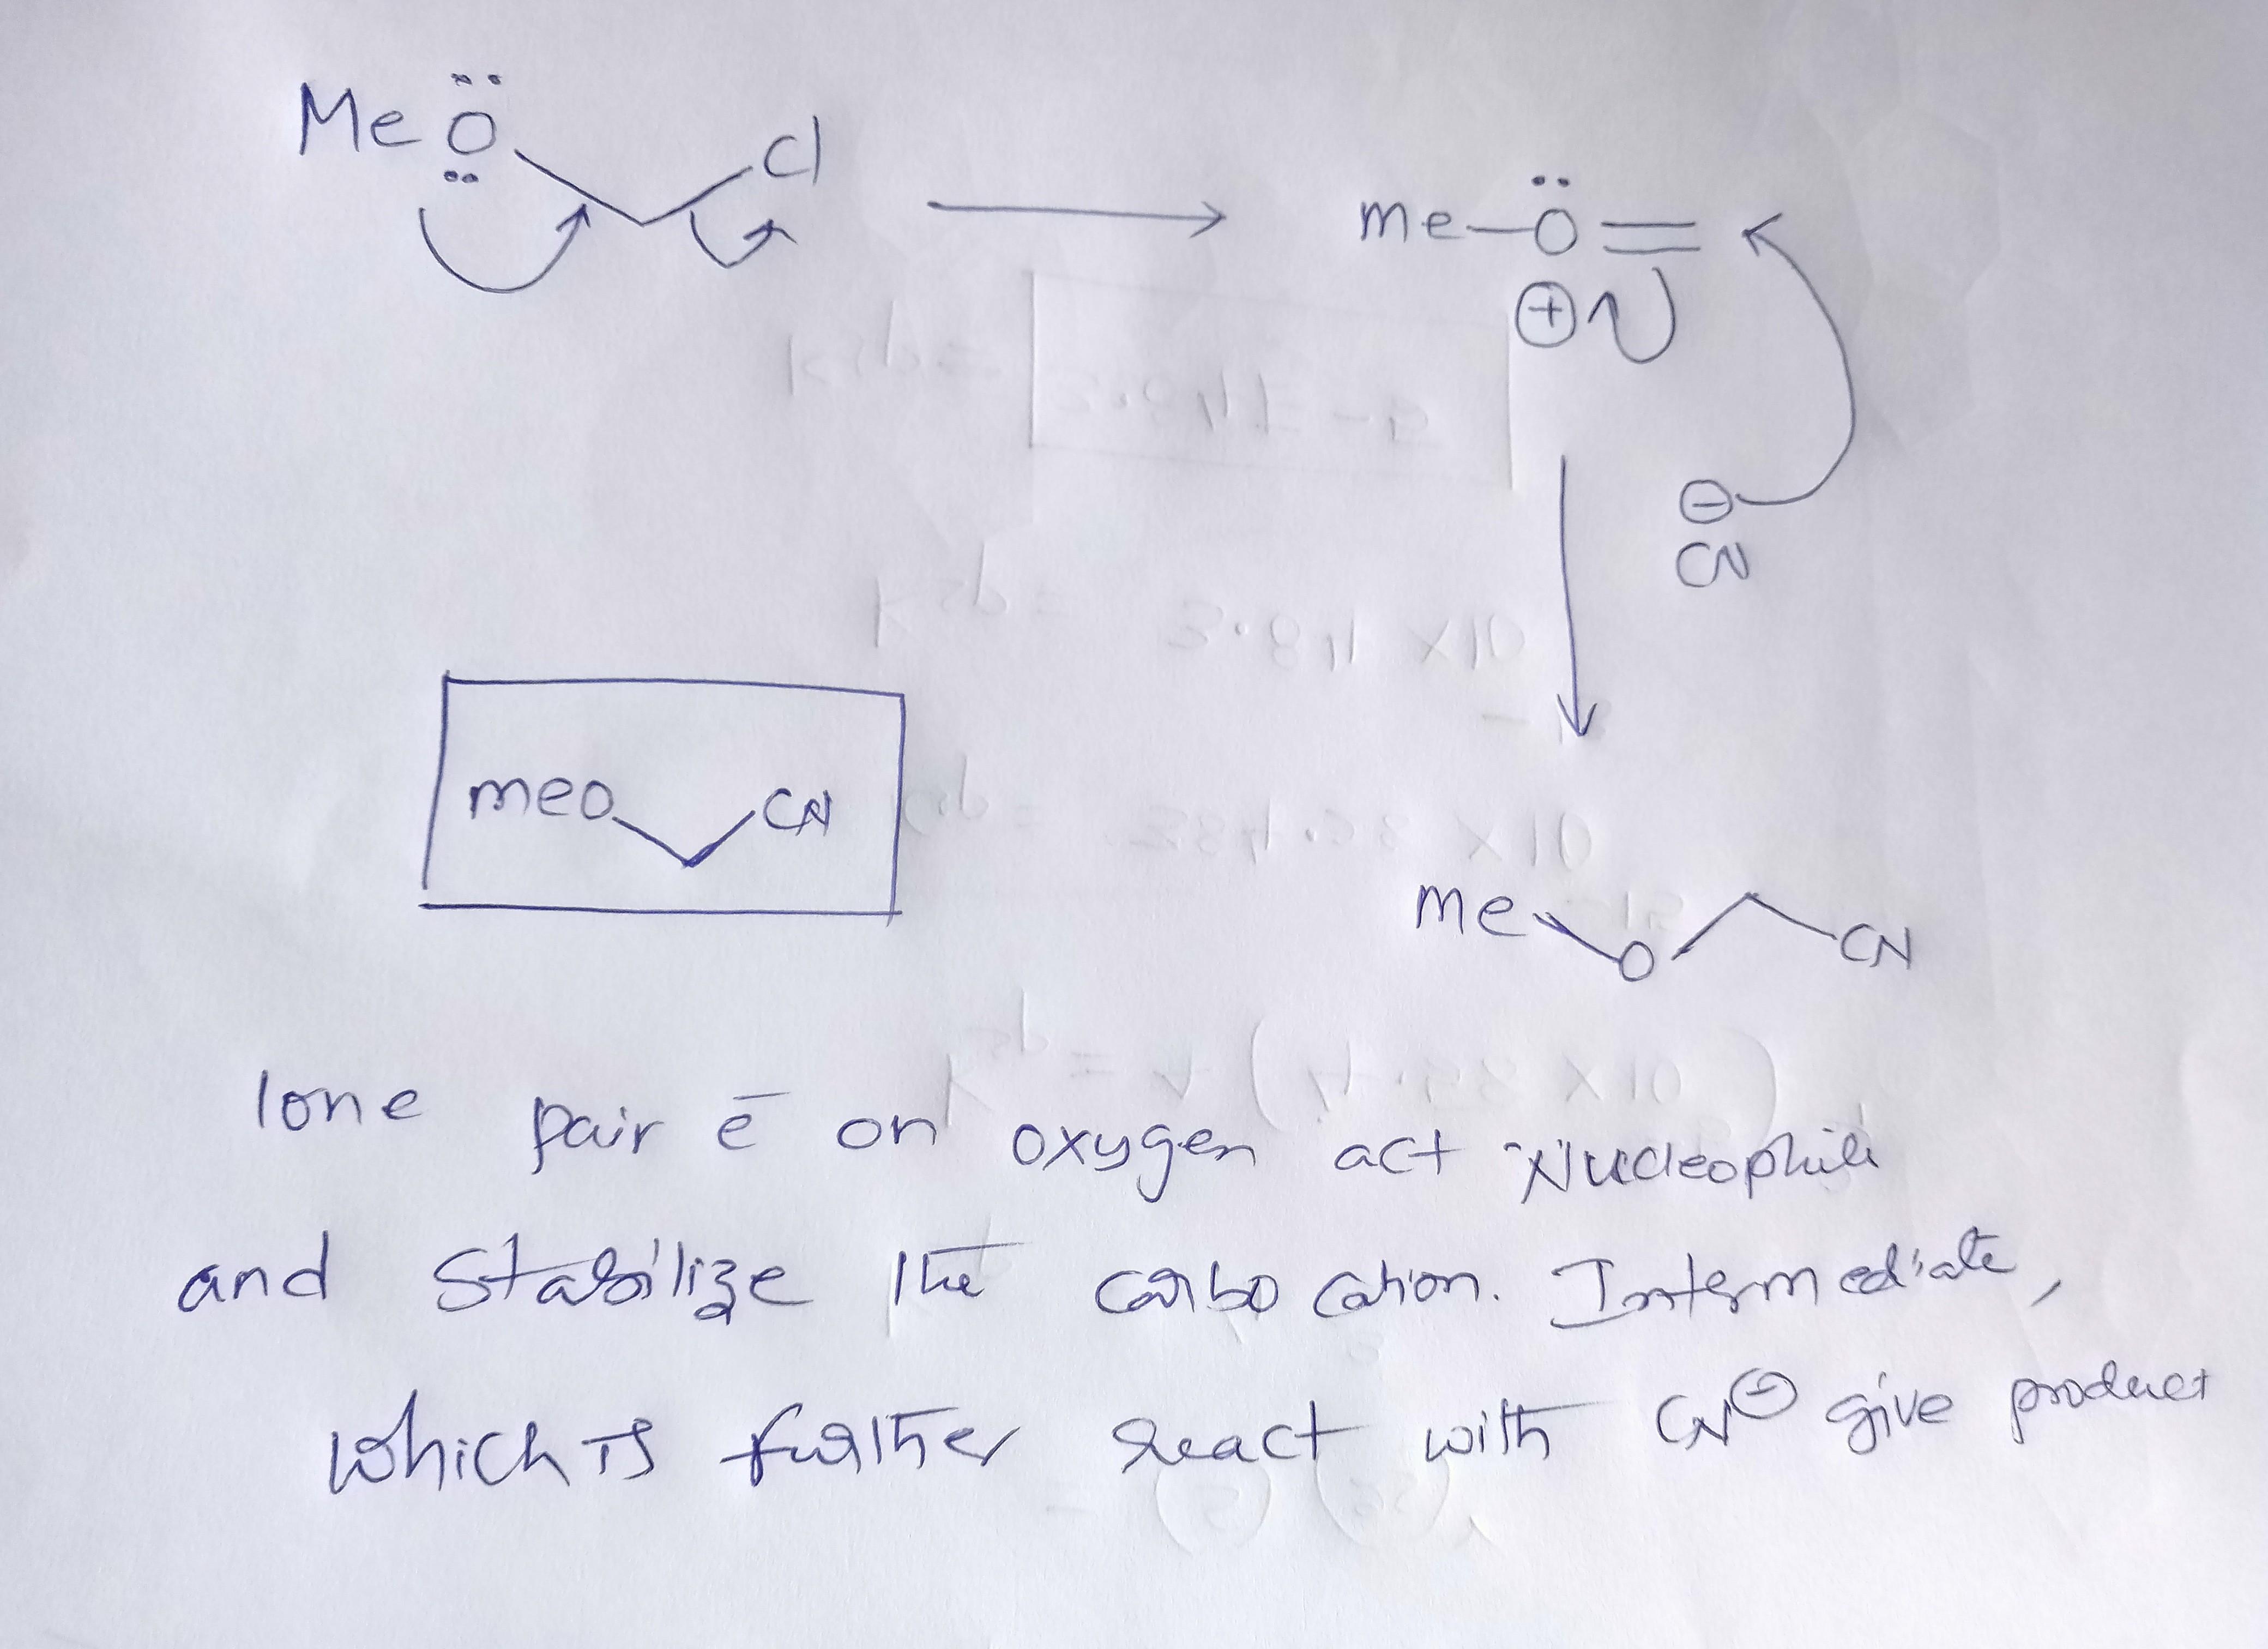 MeO Cl
me-O=
⊕
⊖
CN
meo CN
me O CN
lone pair e̅ on oxygen act Nucleophile
and stabilize the carbocation. Intermediate,
which is further react with CN⊖ give product